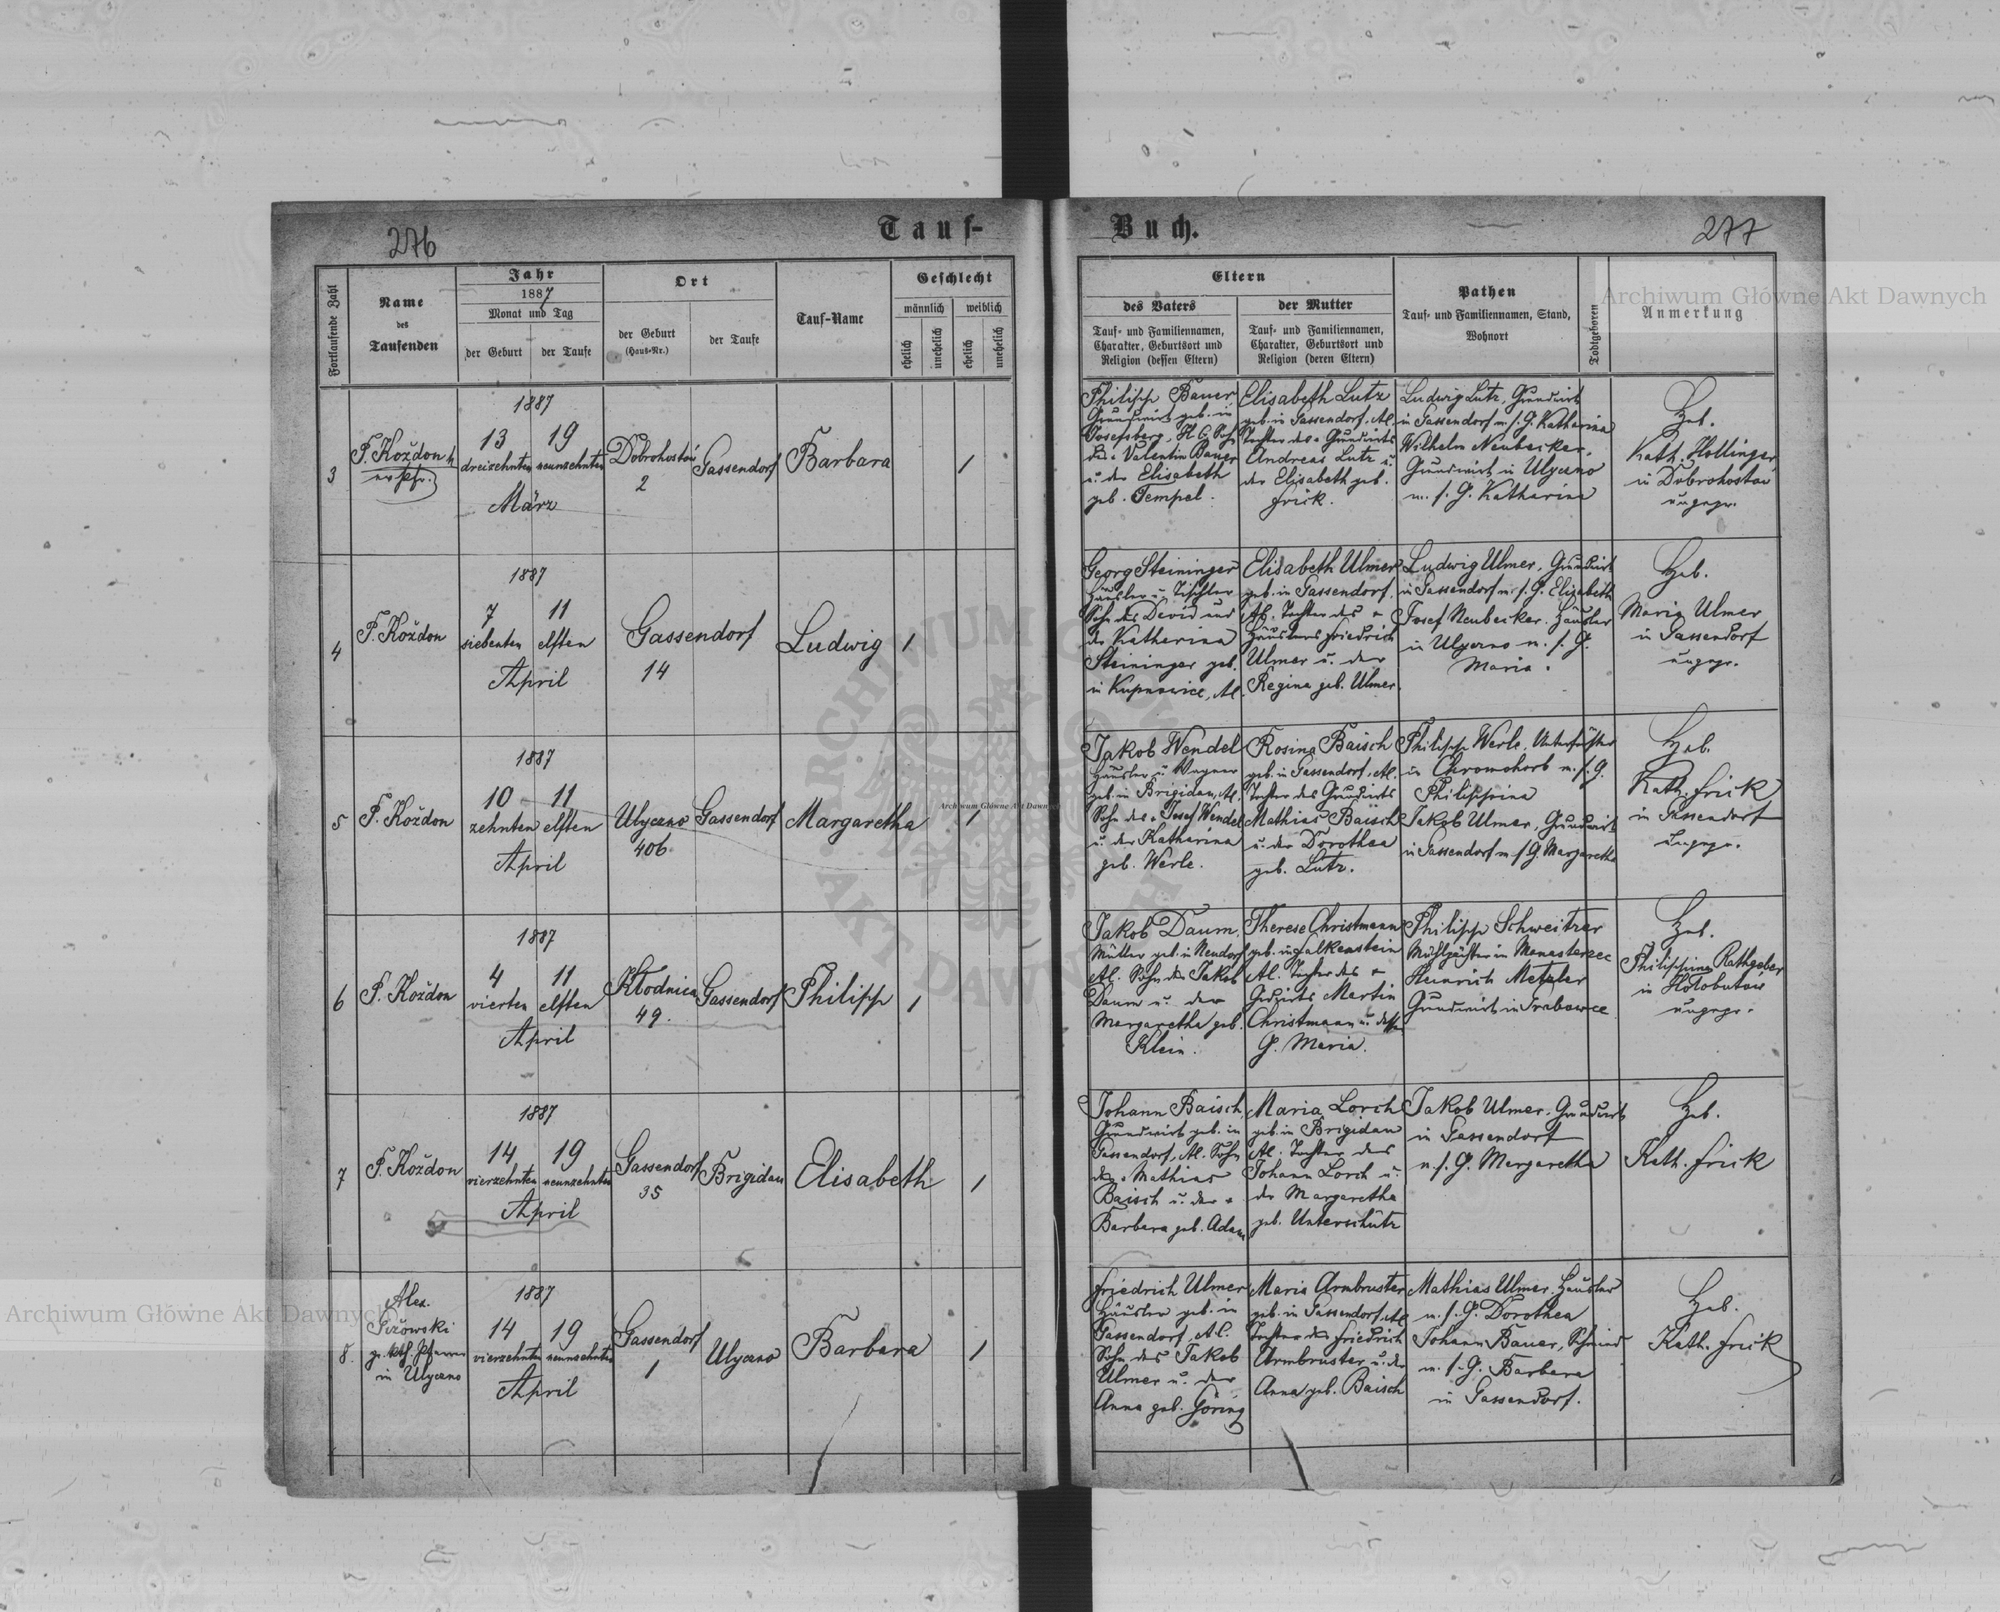 276
Tauf-
Buch.
277
Fortlaufende Zahl
Name
des
Taufenden
Jahr
1887
Monat und Tag
der Geburt
der Taufe
Ort
der Geburt
(Haus-Nr.)
der Taufe
Tauf-Name
Geschlecht
männlich
weiblich
ehelich
unehelich
ehelich
unehelich
Eltern
des Vaters
Tauf- und Familiennamen,
Charakter, Geburtsort und
Religion (dessen Eltern)
der Mutter
Tauf- und Familiennamen,
Charakter, Geburtsort und
Religion (deren Eltern)
Pathen
Tauf- und Familiennamen, Stand,
Wohnort
Todtgeboren
Anmerkung
3
P. Koždon
1887
13
dreizehnten
19
neunzehnten
März
Dobrohostów
2
Gassendorf
Barbara
1
Philipp Bauer
Grundwirt geb. in
Josefsberg, H. C. Sohn
des + Valentin Bauer
u. der Elisabeth
geb. Tempel.
Elisabeth Lutz
geb. in Gassendorf, Al.
Tochter des + Grundwirts
Andreas Lutz u.
der Elisabeth geb.
Frick.
Ludwig Lutz, Grundwirt
in Gassendorf m. s. G. Katharina
Wilhelm Neubecker,
Grundwirt in Ulyczno
m. s. G. Katharina
Heb.
Kath. Hollinger
in Dobrohostow
ungepr.
4
P. Koždon
1887
7
siebenten
11
elften
April
Gassendorf
14
Ludwig
1
Georg Steininger
Häusler u. Tischler
Sohn des David und
der Katharina
Steininger geb.
in Kupnowice, Al.
Elisabeth Ulmer
geb. in Gassendorf.
Al. Tochter des +
Häuslers Friedrich
Ulmer u. der
Regina geb. Ulmer.
Ludwig Ulmer, Grundwirt
in Gassendorf m. s. G. Elisabeth
Josef Neubecker, Häusler
in Ulyczno m. s. G.
Maria.
Heb.
Maria Ulmer
in Gassendorf
ungepr.
5
P. Koždon
1887
10
zehnten
11
elften
April
Ulyczno
406
Gassendorf
Margaretha
1
Jakob Wendel
Häusler u. Wagner
geb. in Brigidau, Al.
Sohn des + Josef Wendel
u. der Katharina
geb. Werle.
Rosina Baisch
geb. in Gassendorf, Al.
Tochter des Grundwirts
Mathias Baisch
u. der Dorothea
geb. Lutz.
Philipp Werle, Unterförster
in Chromohorb m. s. G.
Philippina
Jakob Ulmer, Grundwirt
in Gassendorf m. s. G. Margaretha
Heb.
Kath. Frick
in Gassendorf
ungepr.
6
P. Koždon
1887
4
vierten
11
elften
April
Kłodnica
49.
Gassendorf
Philipp
1
Jakob Daum,
Müller geb. in Neudorf
Al. Sohn des Jakob
Daum u. der
Margaretha geb.
Klein.
Therese Christmann
geb. in Falkenstein
Al. Tochter des +
Grdwirts Martin
Christmann u. dessen
G. Maria.
Philipp Schweitzer
Mühlpächter in Monasterzec
Heinrich Metzler
Grundwirt in Grabowce
Heb.
Philippina Rathgeber
in Holobutow
ungepr.
7
P. Koždon
1887
14
vierzehnten
19
neunzehnten
April
Gassendorf
35
Brigidau
Elisabeth
1
Johann Baisch,
Grundwirt geb. in
Gassendorf, Al. Sohn
des + Mathias
Baisch u. der +
Barbara geb. Adam
Maria Lorch
geb. in Brigidau
Al. Tochter des
Johann Lorch u.
der Margaretha
geb. Unterschütz
Jakob Ulmer, Grundwirt
in Gassendorf
m. s. G. Margaretha
Heb.
Kath. Frick
8.
Alex.
gr. kath. Pfarrer
in Ulyczno
1887
14
vierzehnten
19
neunzehnten
April
Gassendorf
1
Ulyczno
Barbara
1
Friedrich Ulmer
Häusler geb. in
Gassendorf, Al.
Sohn des Jakob
Ulmer u. der
Anna geb. Göring
Maria Armbruster
geb. in Gassendorf, Al.
Tochter des Friedrich
Armbruster u. der
Anna geb. Baisch
Mathias Ulmer, Häusler
m. s. G. Dorothea
Johann Bauer, Schmied
m. s. G. Barbara
in Gassendorf.
Heb.
Kath. Frick
Archiwum Główne Akt Dawnych
Archiwum Główne Akt Dawnych
Archiwum Główne Akt Dawnych
ARCHIWUM GŁÓWNE
AKT DAWNYCH